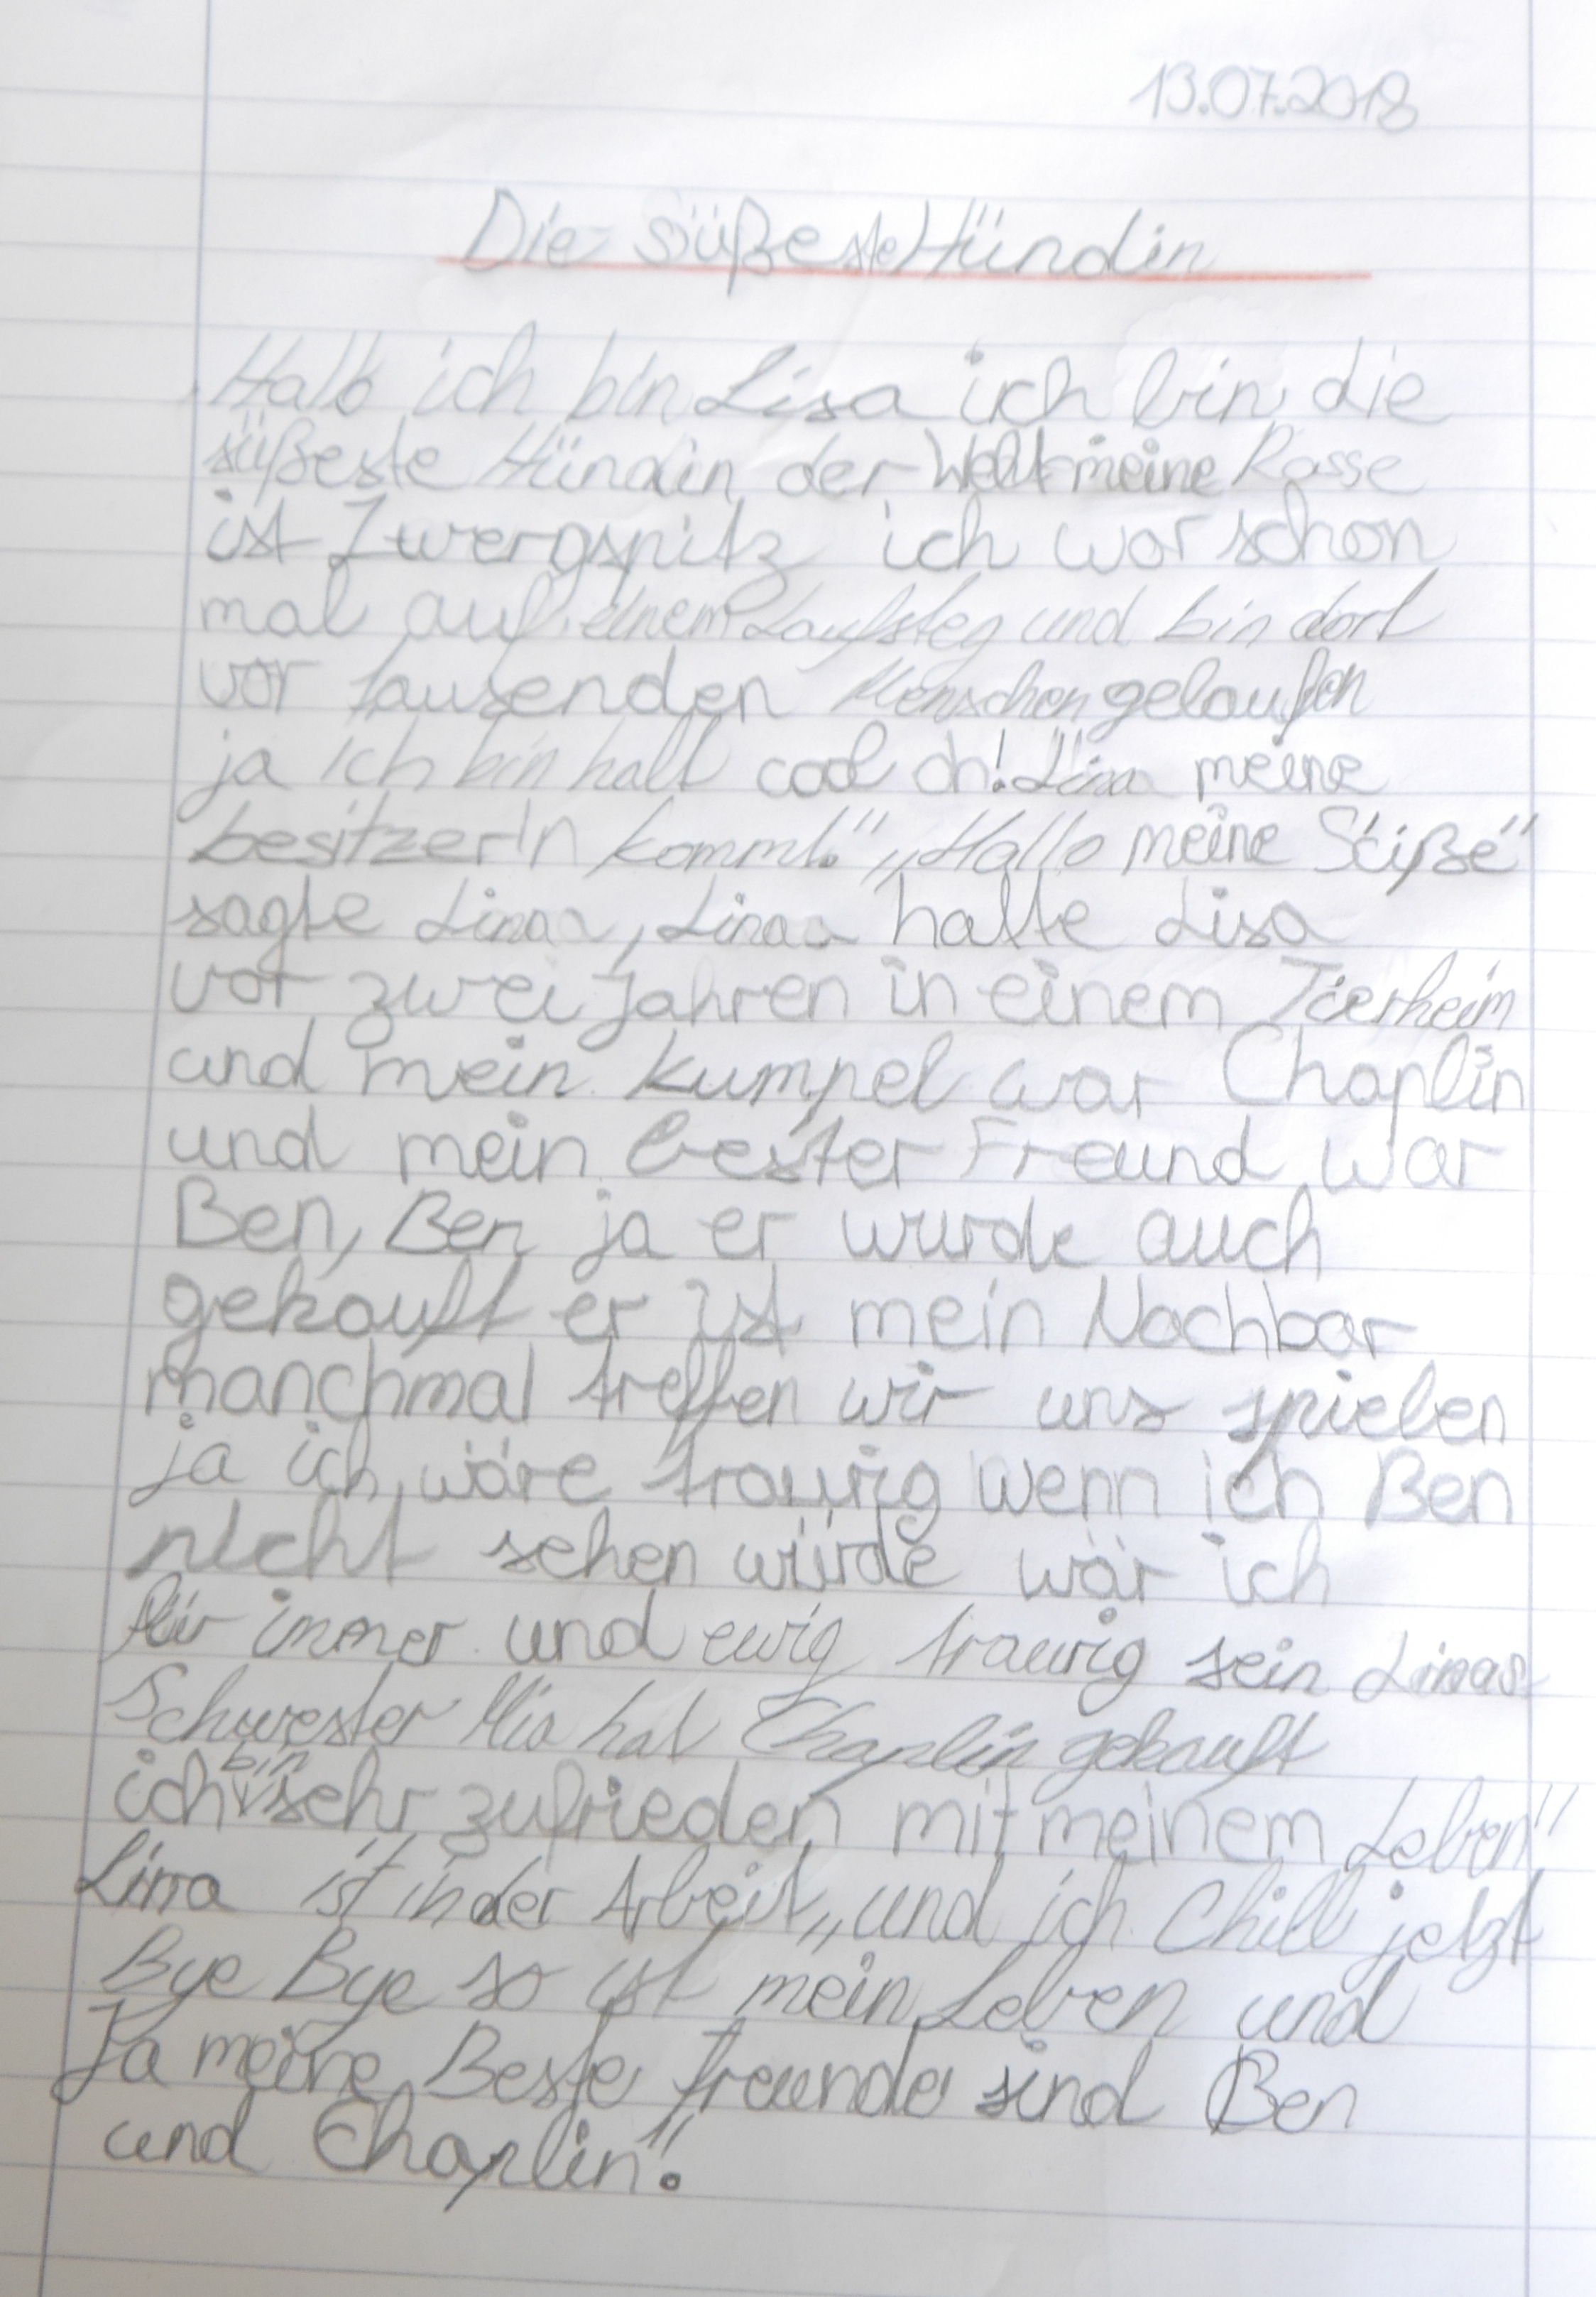 13.07.2018
Die süßeste Hündin
Hallo ich bin Lisa ich bin die
süßeste Hündin der Welt meine Rasse
ist Zwergspitz ich war schon
mal auf einem Laufsteg und bin dort
vor tausenden Menschen gelaufen
ja ich bin halt cool oh! Lina meine
besitzerin kommt." „Hallo meine Süße"
sagte Lina, Lina hatte Lisa
vor zwei Jahren in einem Tierheim
und mein kumpel war Chaplin
und mein bester Freund war
Ben, Ben ja er wurde auch
gekauft er ist mein Nachbar
manchmal treffen wir uns spielen
ja ich wäre traurig wenn ich Ben
nicht sehen würde wär ich
für immer und ewig traurig sein Linas
Schwester Mia hat Chaplin gekauft
ich bin sehr zufrieden mit meinem Leben"
Lina ist in der Arbeit, „und ich Chill jetzt
Bye Bye so ist mein Leben und
Ja meine Beste freunde sind Ben
und Chaplin".